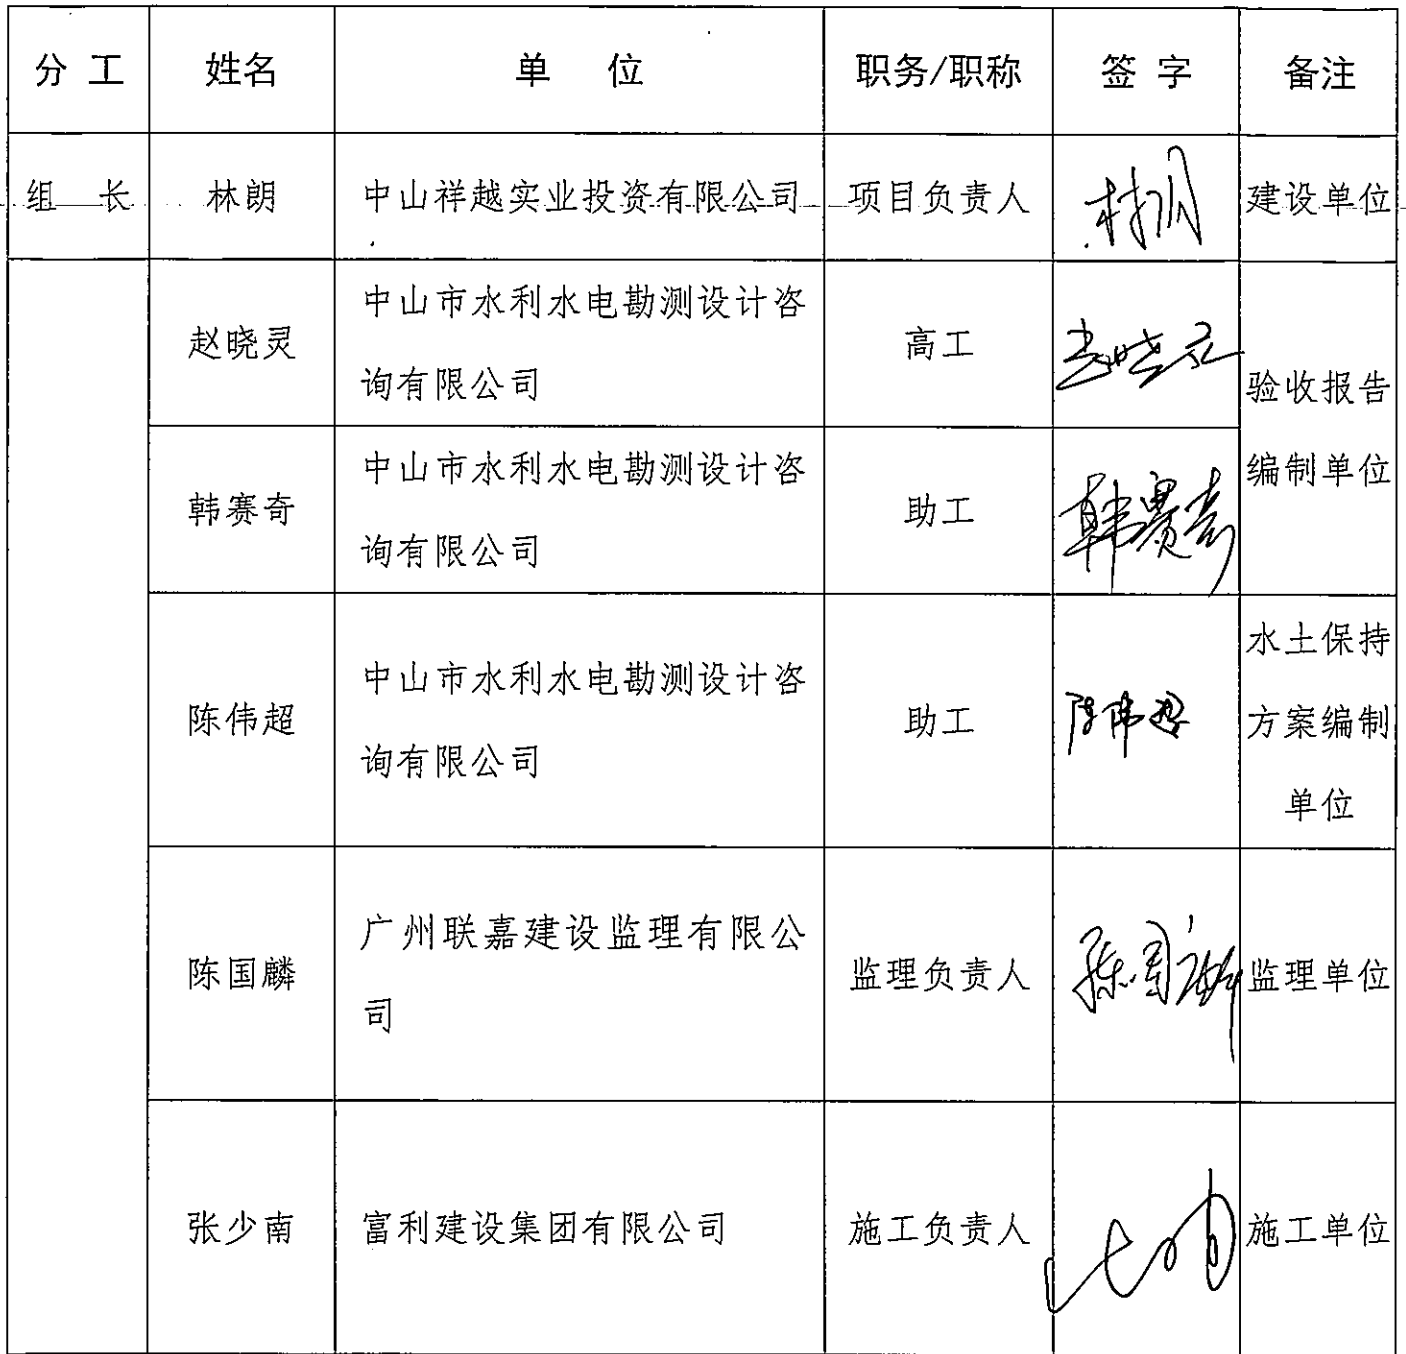 分 工 姓名 单 位 职务/职称 签 字 备注
组 长 林朗 中山祥越实业投资有限公司 项目负责人 林朗 建设单位
赵晓灵
中山市水利水电勘测设计咨
询有限公司
高工
赵晓灵
验收报告
编制单位
韩赛奇
中山市水利水电勘测设计咨
询有限公司
助工
韩赛奇
陈伟超
中山市水利水电勘测设计咨
询有限公司
助工
陈伟超
水土保持
方案编制
单位
陈国麟
广州联嘉建设监理有限公
司
监理负责人
陈国麟
监理单位
张少南 富利建设集团有限公司 施工负责人 施工单位